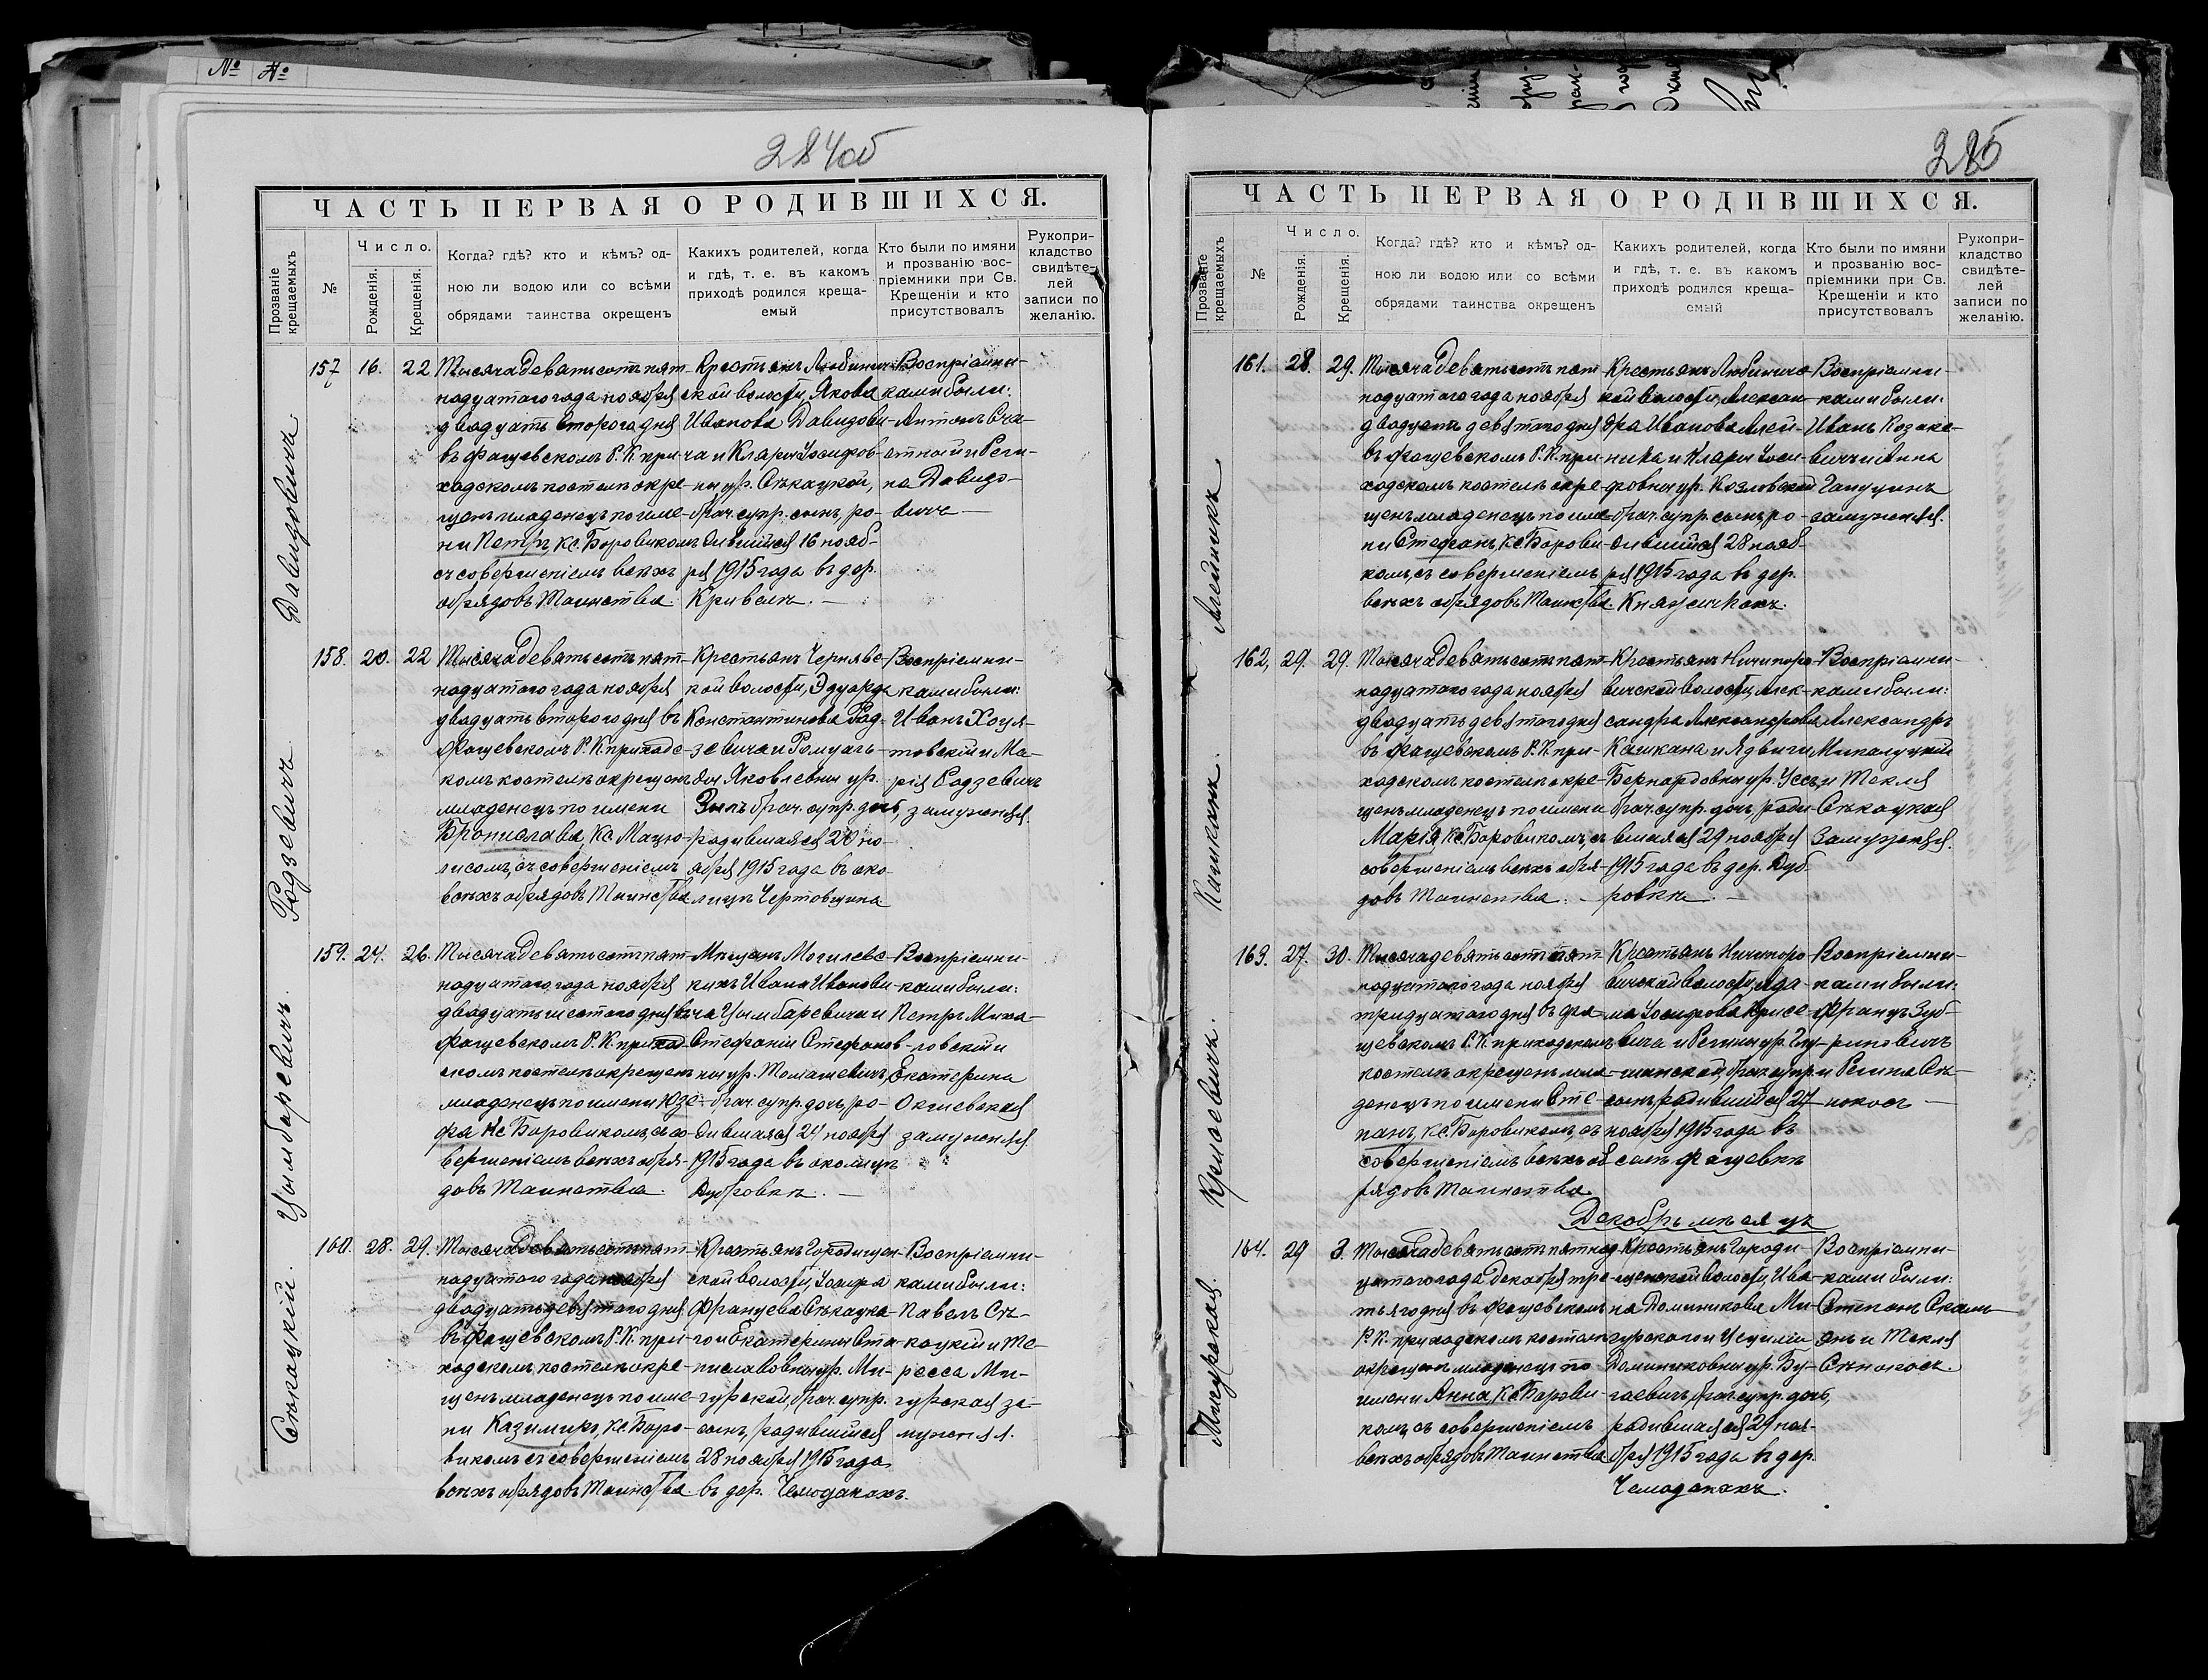 № №
284об
ЧАСТЬ ПЕРВАЯ О РОДИВШИХСЯ.
Прозваніе крещаемыхъ
№
Число.
Рожденія.
Крещенія.
Когда? гдѣ? кто и кѣмъ? од-
ною ли водою или со всѣми
обрядами таинства окрещенъ
Какихъ родителей, когда
и гдѣ, т. е. въ какомъ
приходѣ родился креща-
емый
Кто были по имяни
и прозванію вос-
пріемники при Св.
Крещеніи и кто
присутствовалъ
Рукопри-
кладство
свидѣте-
лей
записи по
желанію.
Давидовичъ
157 16. 22
Тысяча девятьсотъ пят-
надцатого года ноября
двадцать второго дня
въ Фащевскомъ Р. К. при-
ходскомъ костелѣ окре-
щенъ младенецъ по име-
ни Петръ Кс. Боровикомъ
съ совершеніемъ всѣхъ
обрядовъ Таинства.
Крестьянъ Любинич-
ской волости, Якова
Иванова Давидови-
ча и Клары Іосифов-
ны ур. Сѣкацкой,
брач. супр. сынъ, ро-
дившійся 16 нояб-
ря 1915 года въ дер.
Кривель.
Воспріемни-
ками были:
Антонъ
и Реги-
на Давидо-
вичъ
Родзевичъ
158. 20. 22
Тысяча девятьсотъ пят-
надцатого года ноября
двадцать второго дня въ
Фащевскомъ Р. К. приходс-
комъ костелѣ окрещенъ
младенецъ по имени
Брониславъ, Кс. Мацю-
лисомъ, съ совершеніемъ
всѣхъ обрядовъ Таинства
Крестьянъ Чернявс-
кой волости, Эдуарда
Константинова Род-
зевича и Ромуаль-
ды Яковлевны ур.
брач. супр. дочь,
родившаяся 20 но-
ября 1915 года въ око-
лицѣ Чертовщина.
Воспріемни-
ками были:
Иванъ Хоця-
товскій и Ма-
рія Родзевичъ
замужняя.
Цымбаревичъ.
159. 24. 26.
Тысяча девятьсотъ пят-
надцатого года ноября
двадцать шестого дня въ
Фащевскомъ Р. К. приход-
скомъ костелѣ окрещенъ
младенецъ по имени Юзе-
фа Кс. Боровикомъ, съ со-
вершеніемъ всѣхъ обря-
довъ Таинства.
Мѣщанъ Могилевс-
кихъ Ивана Иванови-
ча Цымбаревича и
Стефаніи Стефанов-
ны ур. Томашевичъ,
брач. супр. дочь, ро-
дившаяся 24 ноября
1915 года въ околицѣ
Дубровкѣ.
Воспріемни-
ками были:
Петръ Миха-
ловскій и
Екатерина
замужняя
Сѣкацкій.
160. 28. 29.
Тысяча девятьсотъ пят-
надцатого года ноября
двадцать девятого дня
въ Фащевскомъ Р. К. при-
ходскомъ костелѣ окре-
щенъ младенецъ по име-
ни Казимиръ, Кс. Боро-
викомъ съ совершеніемъ
всѣхъ обрядовъ Таинства.
Крестьянъ Городищен-
ской волости, Іосифа
Францева Сѣкацка-
го и Екатерины Ста-
ниславовны ур. Ми-
гурской, брач. супр.
сынъ, родившійся
28 ноября 1915 года
въ дер. Чемоданахъ.
Воспріемни-
ками были:
Павелъ Сѣ-
кацкій и Те-
ресса Ми-
гурская за-
мужняя.
285
ЧАСТЬ ПЕРВАЯ О РОДИВШИХСЯ.
Прозваніе крещаемыхъ
№
Число.
Рожденія.
Крещенія.
Когда? гдѣ? кто и кѣмъ? од-
ною ли водою или со всѣми
обрядами таинства окрещенъ
Какихъ родителей, когда
и гдѣ, т. е. въ какомъ
приходѣ родился креща-
емый
Кто были по имяни
и прозванію вос-
пріемники при Св.
Крещеніи и кто
присутствовалъ
Рукопри-
кладство
свидѣте-
лей
записи по
желанію.
Алейникъ
161. 28. 29.
Тысяча девятьсотъ пят-
надцатого года ноября
двадцать девятого дня
въ Фащевскомъ Р. К. при-
ходскомъ костелѣ окре-
щенъ младенецъ по име-
ни Стефанъ, Кс. Борови-
комъ, съ совершеніемъ
всѣхъ обрядовъ Таинства.
Крестьянъ Любиничс-
кой волости, Алексан-
дра Иванова Алей-
ника и Клары Іоси-
фовны ур. Козловской
брач. супр. сынъ ро-
дившійся 28 нояб-
ря 1915 года въ дер.
Воспріемни-
ками были:
Иванъ Козаке-
вичъ и Анна
замужняя.
Кашканъ.
162, 29. 29.
Тысяча девятьсотъ пят-
надцатого года ноября
двадцать девятого дня
въ Фащевскомъ Р. К. при-
ходскомъ костелѣ окре-
щенъ младенецъ по имени
Марія, Кс. Боровикомъ, съ
совершеніемъ всѣхъ обря-
довъ Таинства.
Крестьянъ Ничипоро-
вичской волости, Алек-
сандра Александрова
Кашкана и Ядвиги
Бернардовны ур. Уссъ,
брач. супр. дочь, роди-
вшаяся 29 ноября
1915 года въ дер. Дуб-
ровкѣ.
Воспріемни-
ками были:
Александръ
и Текля
Сѣкацкая
замужняя.
Крисевичъ.
163. 27. 30.
Тысяча девятьсотъ пят-
надцатого года ноября
тридцатого дня въ Фа-
щевскомъ Р. К. приходскомъ
костелѣ окрещенъ мла-
денецъ по имени Сте-
панъ, Кс. Боровикомъ, съ
совершеніемъ всѣхъ об-
рядовъ Таинства.
Крестьянъ Ничипоро-
вичской волости, Ада-
ма Іосифова Крисе-
вича и Регины ур. Глу-
шинской, брач. супр.
сынъ, родившійся 27
ноября 1915 года въ
селѣ Фащевкѣ
Воспріемни-
ками были:
Францъ Зуб-
риновичъ
и Регина Сѣ-
нокосъ
Декабрь мѣсяцъ
Мигурская.
164. 29 3.
Тысяча девятьсотъ пятнад-
цатого года декабря тре-
тьяго дня въ Фащевскомъ
Р. К. приходскомъ костелѣ
окрещенъ младенецъ по
имени Анна, Кс. Борови-
комъ, съ совершеніемъ
всѣхъ обрядовъ Таинства.
Крестьянъ Городи-
щенской волости, Ива-
на Доминикова Ми-
гурского и Цециліи
Доминиковны ур. Бу-
гаевичъ, брач. супр. дочь,
родившаяся 29 ноя-
бря 1915 года въ дер.
Чемоданахъ.
Воспріемни-
ками были:
Степанъ
и Текля
Сѣнокосъ.